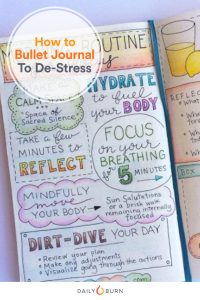 How to
Bullet Journal
To De-Stress
ROUTINE
HYDRATE
to fuel
your BODY
CALM
"Space of
Sacred Silence"
TAKE A few
MINUTES to
REFLECT
FOCUS
on your
BREATHING
for 5
MINUTES
MINDFULLY
move
YOUR BODY →
Sun Salutations
or a brisk walk
remaining internally
focused
DIRT-DIVE YOUR DAY
• Review your plan
• Make any adjustments
• Visualize going through the actions
REFLEC
• Wha
Box
DAILY BURN